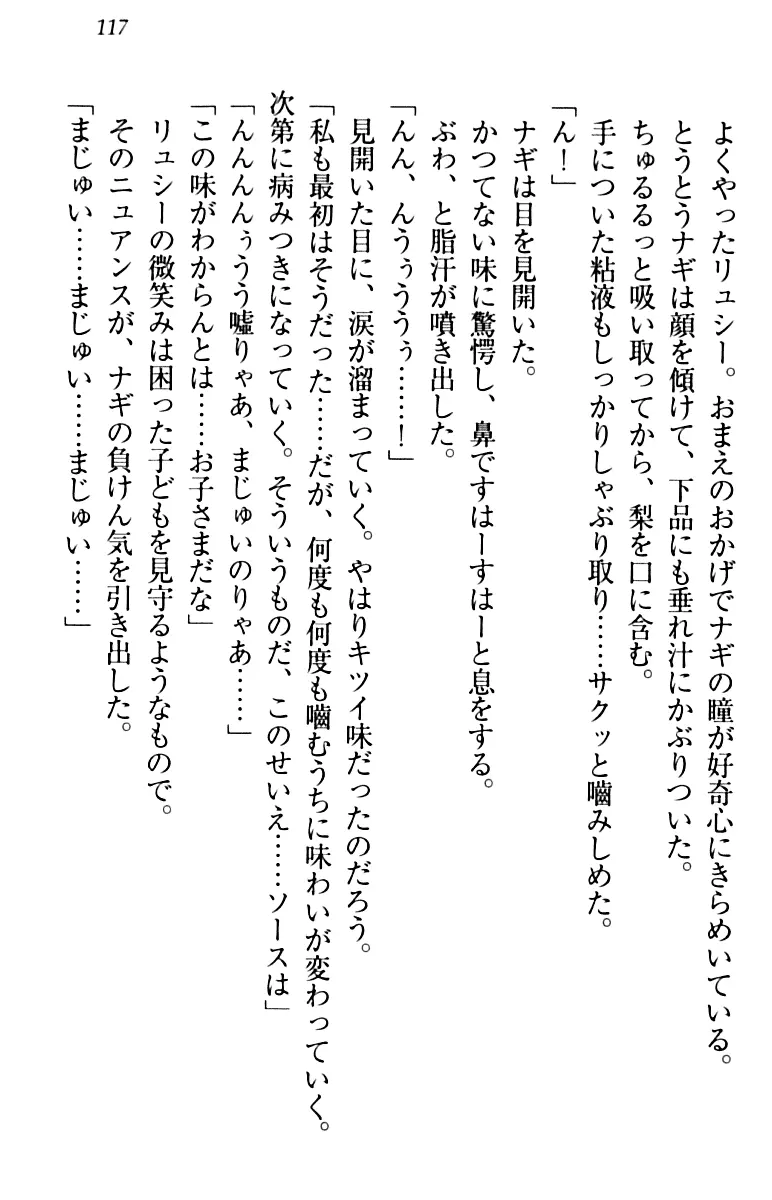 117
よくやったリュシー。おまえのおかげでナギの瞳が好奇心にきらめいている。
とうとうナギは顔を傾けて、下品にも垂れ汁にかぶりついた。
ちゅるるっと吸い取ってから、梨を口に含む。
手についた粘液もしっかりしゃぶり取り……サクッと嚙みしめた。
「ん！」
ナギは目を見開いた。
かつてない味に驚愕し、鼻ですはーすはーと息をする。
ぶわ、と脂汗が噴き出した。
「んん、んうぅううぅ……！」
見開いた目に、涙が溜まっていく。やはりキツイ味だったのだろう。
「私も最初はそうだった……だが、何度も何度も嚙むうちに味わいが変わっていく。
次第に病みつきになっていく。そういうものだ、このせいえ……ソースは」
「んんんんぅうう嘘りゃあ、まじゅいのりゃあ……」
「この味がわからんとは……お子さまだな」
リュシーの微笑みは困った子どもを見守るようなもので。
そのニュアンスが、ナギの負けん気を引き出した。
「まじゅい……まじゅい……まじゅい……」